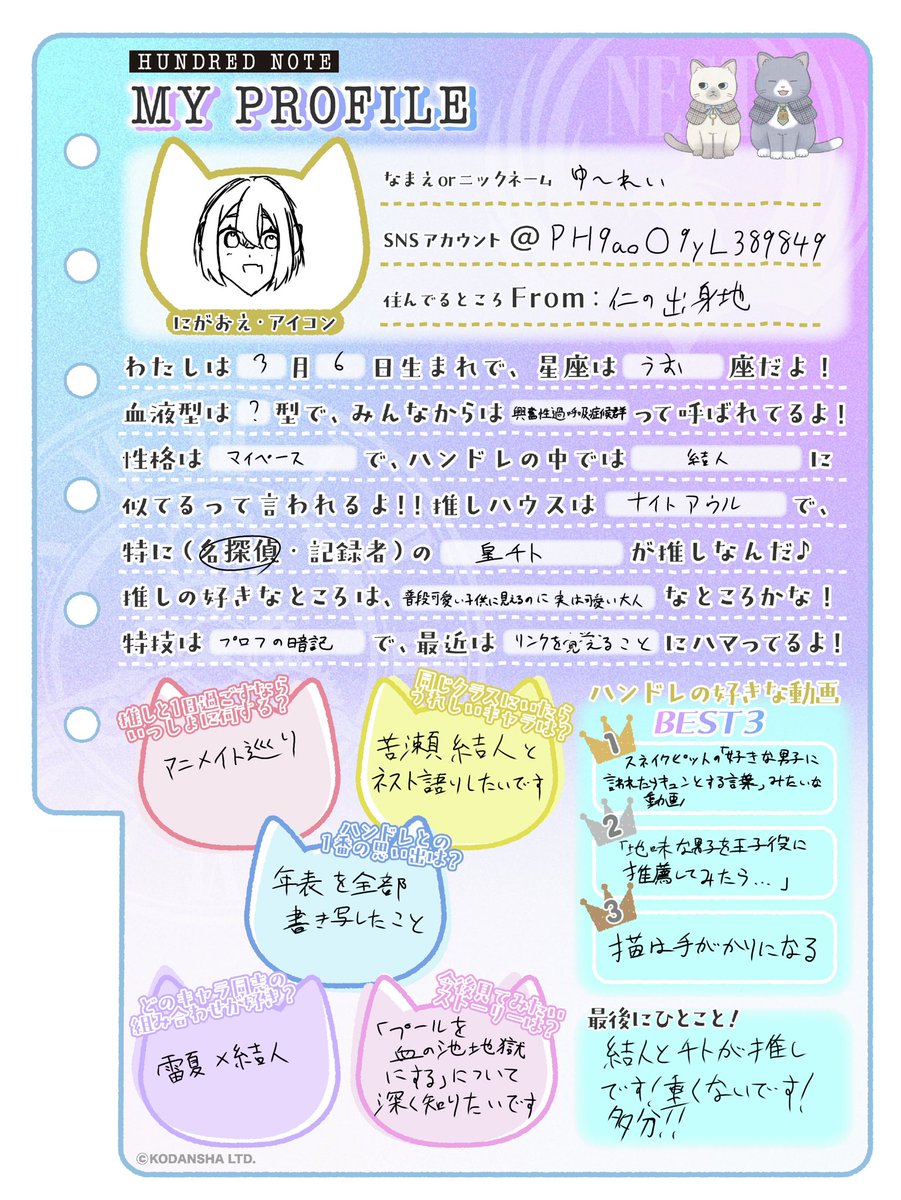 HUNDRED NOTE
MY PROFILE
なまえorニックネーム ゆ〜れい
SNSアカウント @PH9aoO9yL389849
住んでるところ From:仁の出身地
にがおえ・アイコン
わたしは 3 月 6 日生まれで、星座は うお 座だよ!
血液型は ? 型で、みんなからは 興奮性過呼吸症候群 って呼ばれてるよ!
性格は マイペース で、ハンドレの中では 結人 に
似てるって言われるよ!!推しハウスは ナイトアウル で、
特に(名探偵・記録者)の 皇チト が推しなんだ♪
推しの好きなところは、普段可愛い子供に見えるのに実は可愛い大人 なところかな!
特技は プロフの暗記 で、最近は リンクを覚えること にハマってるよ!
推しと1日過ごすなら
いっしょに何する?
アニメイト巡り
同じクラスにいたら
うれしいキャラは?
苦瀬結人と
ネスト語りしたいです
ハンドレの好きな動画
BEST3
1
スネイクピットの「好きな男子に
言われたらキュンとする言葉」みたいな
動画
2
「地味な男子を王子役に
推薦してみたら...」
3
猫は手がかりになる
ハンドレとの
1番の思い出は?
年表を全部
書き写したこと
どのキャラ同士の
組み合わせが好き?
雷夏×結人
今後見てみたい
ストーリーは?
「プールを
血の池地獄
にする」について
深く知りたいです
最後にひとこと!
結人とチトが推し
です!重くないです!
多分!!
©KODANSHA LTD.